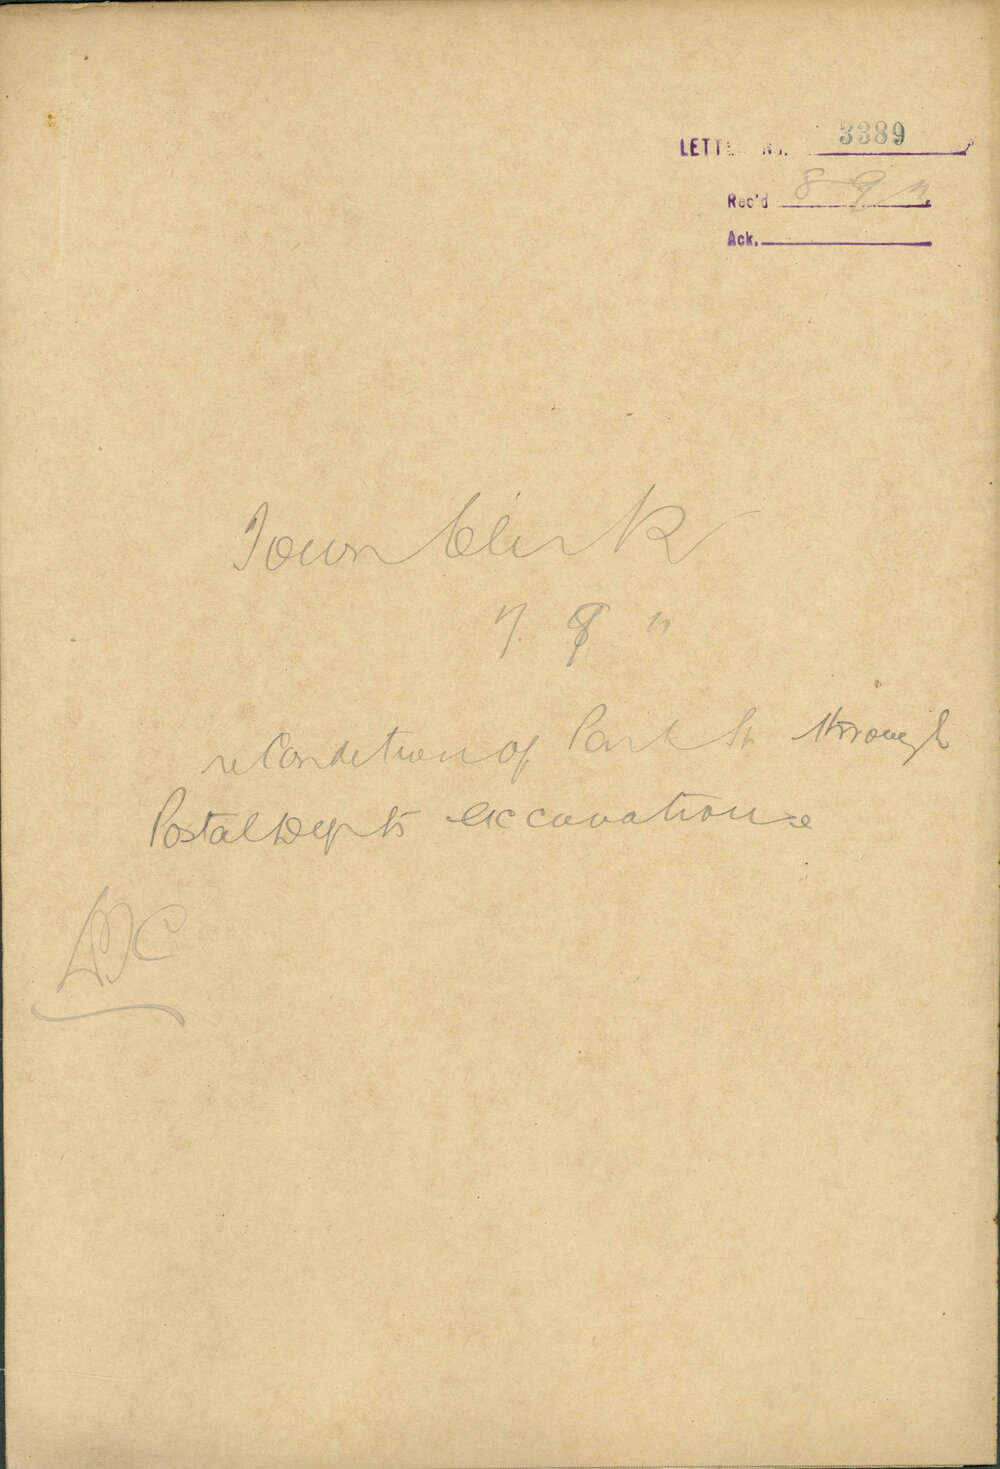 LETTER No. 3389
Rec'd 8 9 11
Ack.
Town Clerk
7. 9. 11
re Condition of Park St through
Postal Depts excavations